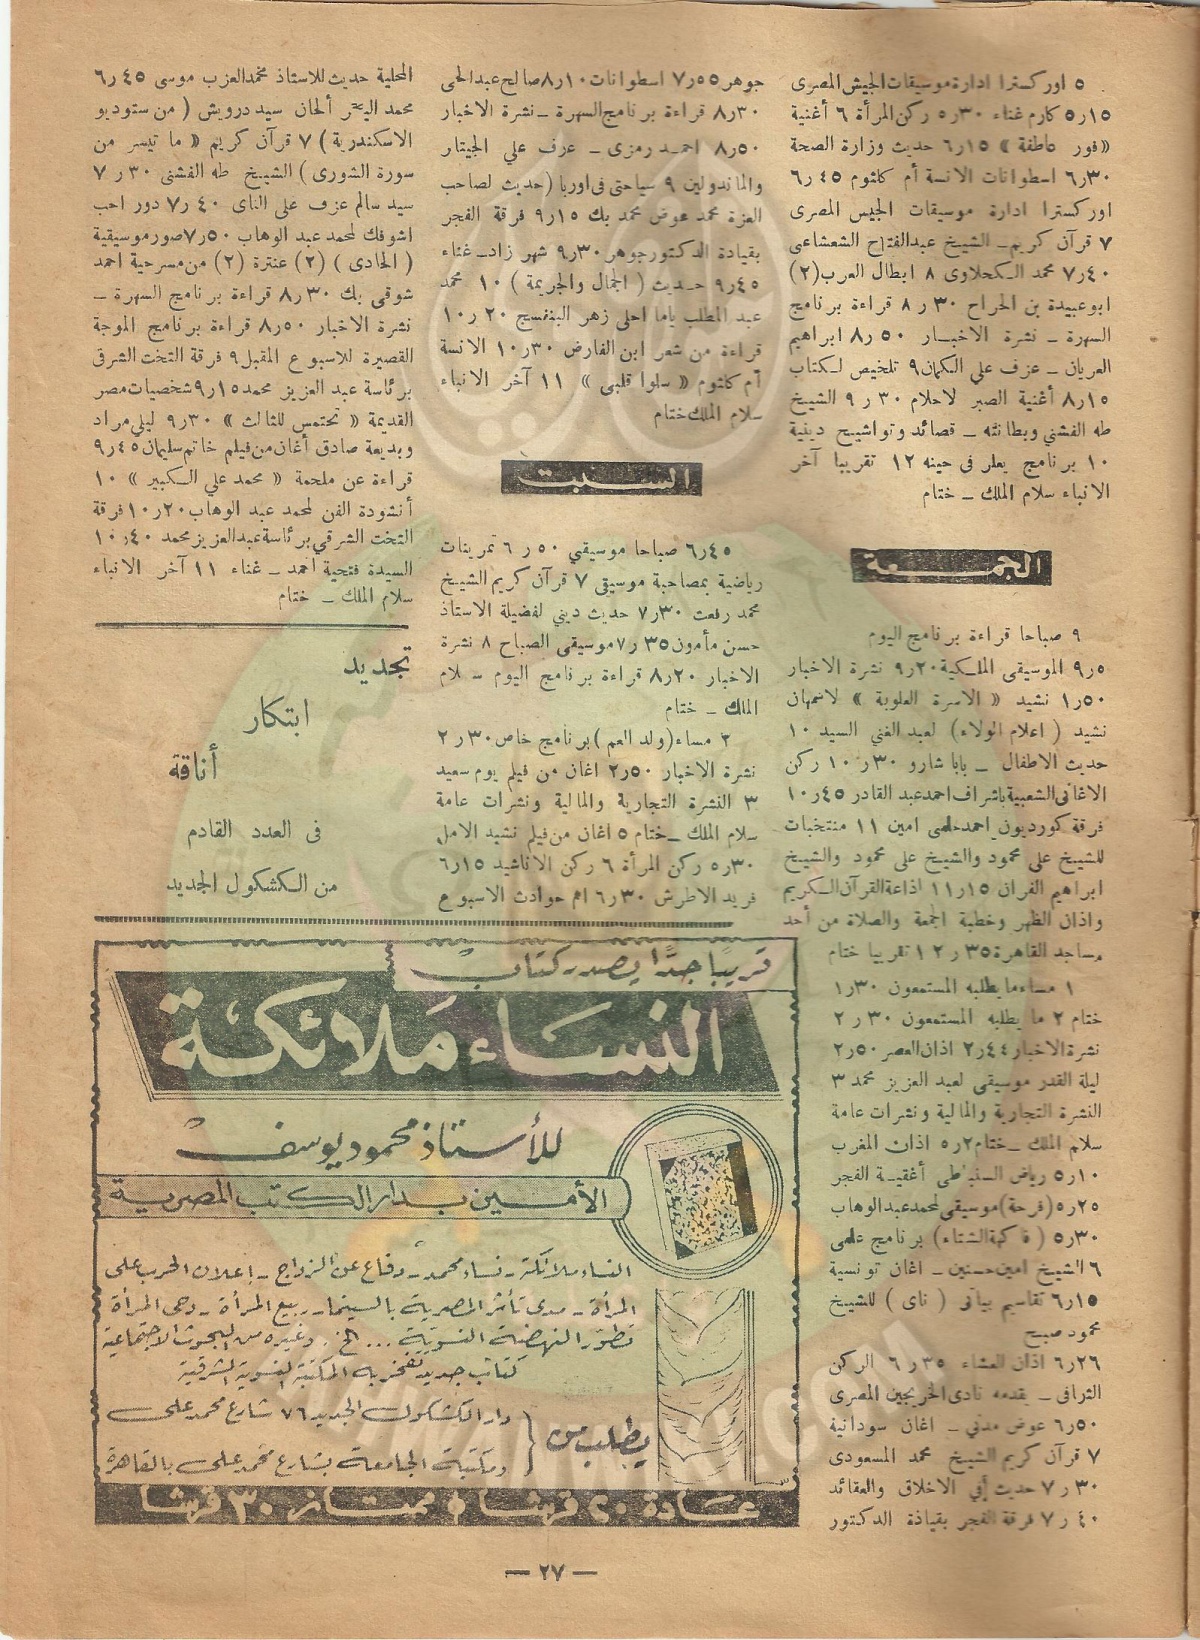 ٥ اوركسترا ادارة موسيقات الجيش المصرى
٥ر١٥ كارم غناء ٥ر٣٠ ركن المرأة ٦ أغنية
« فور عاطفة » ٦ر١٥ حديث وزارة الصحة
٦ر٣٠ اسطوانات الانسة أم كلثوم ٦ر٤٥
اوركسترا ادارة موسيقات الجيس المصرى
٧ قرآن كريم ــ الشيخ عبدالفتاح الشعشاعى
٧ر٤٠ محمد الكحلاوى ٨ ابطال العرب (٢)
ابو عبيدة بن الجراح ٨ر٣٠ قراءة برنامج
السهرة ــ نشرة الاخبار ٨ر٥٠ ابراهيم
العريان ــ عزف علي الكمان ٩ تلخيص لكتاب
٨ر١٥ أغنية الصبر لاحلام ٩ر٣٠ الشيخ
طه الفشني وبطانته ــ قصائد وتواشيح دينية
١٠ برنامج يعلن فى حينه ١٢ تقريبا آخر
الانباء سلام الملك ــ ختام
الجمعة
٩ صباحا قراءة برنامج اليوم
٩ر٥ الموسيقى الملكية ٩ر٢٠ نشرة الاخبار
١ر٥٠ نشيد « الاسرة العلوية » لاسمهان
نشيد ( اعلام الولاء ) لعبد الغني السيد ١٠
حديث الاطفال ــ بابا شارو ١٠ر٣٠ ركن
الاغانى الشعبية باشراف احمد عبد القادر ١٠ر٤٥
فرقة كورديون احمد حلمى امين ١١ منتخبات
للشيخ على محمود والشيخ على محمود والشيخ
ابراهيم الفران ١١ر١٥ اذاعة القرآن الكريم
واذان الظهر وخطبة الجمعة والصلاة من أحد
مساجد القاهرة ١٢ر٣٥ تقريبا ختام
١ مساء ما يطلبه المستمعون ١ر٣٠
ختام ٢ ما يطلبه المستمعون ٢ر٣٠
نشرة الاخبار ٢ر٤٤ اذان العصر ٢ر٥٠
ليلة القدر موسيقى لعبد العزيز محمد ٣
النشرة التجارية والمالية ونشرات عامة
سلام الملك ــ ختام ٥ر٢ اذان المغرب
٥ر١٠ رياض السنباطى أغنية الفجر
٥ر٢٥ (فرحة) موسيقى لمحمد عبد الوهاب
٥ر٣٠ ( فاكهة الشتاء ) برنامج علمى
٦ الشيخ امين حسنين ــ اغان تونسية
٦ر١٥ تقاسيم بياتى ( ناى ) للشيخ
محمود صبح
٦ر٢٦ اذان العشاء ٦ر٣٥ الركن
الثرافى ــ يقدمه نادى الخريجين المصرى
٦ر٥٠ عوض مدني ــ اغان سودانية
٧ قرآن كريم الشيخ محمد المسعودى
٧ر٣٠ حديث في الاخلاق والعقائد
٧ر٤٠ فرقة الفجر بقيادة الدكتور
جوهر ٧ر٥٥ اسطوانات ٨ر١٠ صالح عبد الحى
٨ر٣٠ قراءة برنامج السهرة ــ نشرة الاخبار
٨ر٥٠ احمد رمزى ــ عزف علي الجيتار
والماندولين ٩ سياحتى فى اوربا ( حديث لصاحب
العزة محمد عوض محمد بك ٩ر١٥ فرقة الفجر
بقيادة الدكتور جوهر ٩ر٣٠ شهر زاد ــ غناء
٩ر٤٥ حديث ( الجمال والجريمة ) ١٠ محمد
عبد المطلب ياما احلى زهر البنفسج ١٠ر٢٠
قراءة من شعر ابن الفارض ١٠ر٣٠ الانسة
أم كلثوم « سلوا قلبى » ١١ آخر الانباء
سلام الملك ختام
السبت
٦ر٤٥ صباحا موسيقي ٦ر٥٠ تمرينات
رياضية بمصاحبة موسيقى ٧ قرآن كريم الشيخ
محمد رفعت ٧ر٣٠ حديث ديني لفضيلة الاستاذ
حسن مأمون ٧ر٣٥ موسيقى الصباح ٨ نشرة
الاخبار ٨ر٢٠ قراءة برنامج اليوم سلام
الملك ــ ختام
٢ مساء (ولد العم) برنامج خاص ٢ر٣٠
نشرة الاخبار ٢ر٥٠ اغان من فيلم يوم سعيد
٣ النشرة التجارية والمالية ونشرات عامة
سلام الملك ــ ختام ٥ اغان من فيلم نشيد الامل
٥ر٣٠ ركن المرأة ٦ ركن الاناشيد ٦ر١٥
فريد الاطرش ٦ر٣٠ اهم حوادث الاسبوع
المحلية حديث للاستاذ محمد العزب موسى ٦ر٤٥
محمد البحر ألحان سيد درويش ( من ستوديو
الاسكندرية ) ٧ قرآن كريم « ما تيسر من
سورة الشورى ) الشيخ طه الفشنى ٧ر٣٠
سيد سالم عزف على الناى ٧ر٤٠ دور احب
اشوفك لمحمد عبد الوهاب ٧ر٥٠ صور موسيقية
( الحادى ) (٢) عنترة (٢) من مسرحية احمد
شوقى بك ٨ر٣٠ قراءة برنامج السهرة ــ
نشرة الاخبار ٨ر٥٠ قراءة برنامج الموجة
القصيرة للاسبوع المقبل ٩ فرقة التخت الشرقى
برئاسة عبد العزيز محمد ٩ر١٥ شخصيات مصر
القديمة « تحتمس للثالث » ٩ر٣٠ ليلي مراد
وبديعة صادق أغان من فيلم خاتم سليمان ٩ر٤٥
قراءة عن ملحمة « محمد علي الكبير » ١٠
أنشودة الفن لمحمد عبد الوهاب ١٠ر٢٠ فرقة
التخت الشرقي برئاسة عبد العزيز محمد ١٠ر٤٠
السيدة فتحية احمد ــ غناء ١١ آخر الانباء
سلام الملك ــ ختام
تجديد
ابتكار
أناقة
فى العدد القادم
من الكشكول الجديد
قريبًا جدًا يصدر كتاب
النساء ملائكة
للأستاذ محمود يوسف
الأمين بدار الكتب المصرية
النساء ملائكة ــ نساء محمد ــ دفاع عن الزواج ــ إعلان الحرب على
المرأة ــ مدى تأثر المصرية بالسينما ــ ربيع المرأة ــ وحى المرأة
تطور النهضة النسوية ... الخ. وغيره من البحوث الاجتماعية
كتاب جديد تفخر به المكتبة النسوية الشرقية
يطلب من
دار الكشكول الجديد ٧٦ شارع محمد على
ومكتبة الجامعة بشارع محمد على بالقاهرة
عادة ٢٠ قرشا ممتاز ٣٠ قرشا
— ٢٧ —